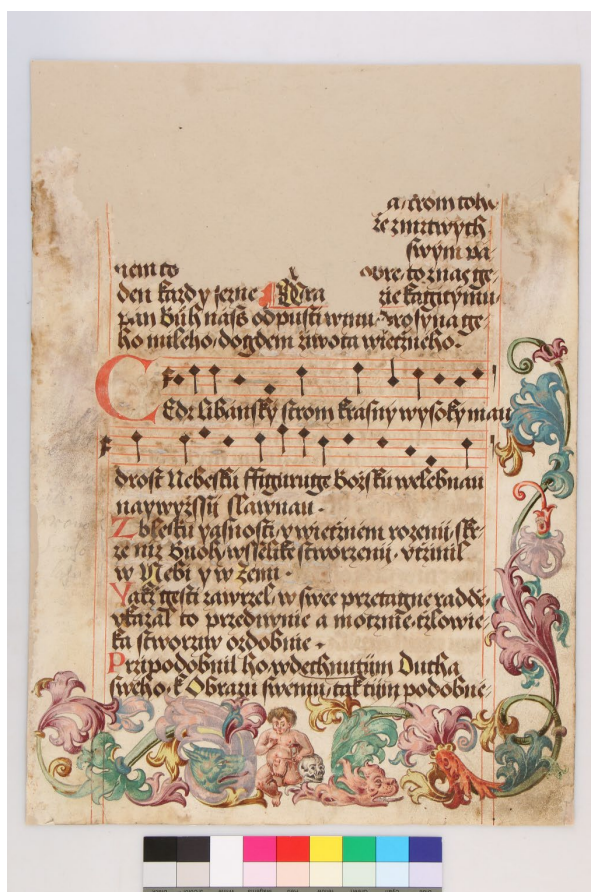 a, ċrom toh
že zmrtwych
swým
nem to obre, to znas ge
den každy jezne Wra
pan Bůh náss odpusti winu
ho mileho, dogdem žiwota wiecžneho.
CEdr Libánský strom krasny wysoky mau
drost Nebesku ffiguruge Božsku welebnau
naywyžssij slawnau.
Z blesku yasnosti, y wiecžnem rozenij, skr
ze niž Buoh, wsselike stworzenij, včžinil
w Nebi y w zemi.
Yakž gesti zawrzel, w swee
vkazal to przediwnie a moczne, czlowie
ka stworziw ozdobnie.
Przipodobnil ho, wdechnutijm Ducha
sweho, k Obrazu swemu, tak tijm podobne